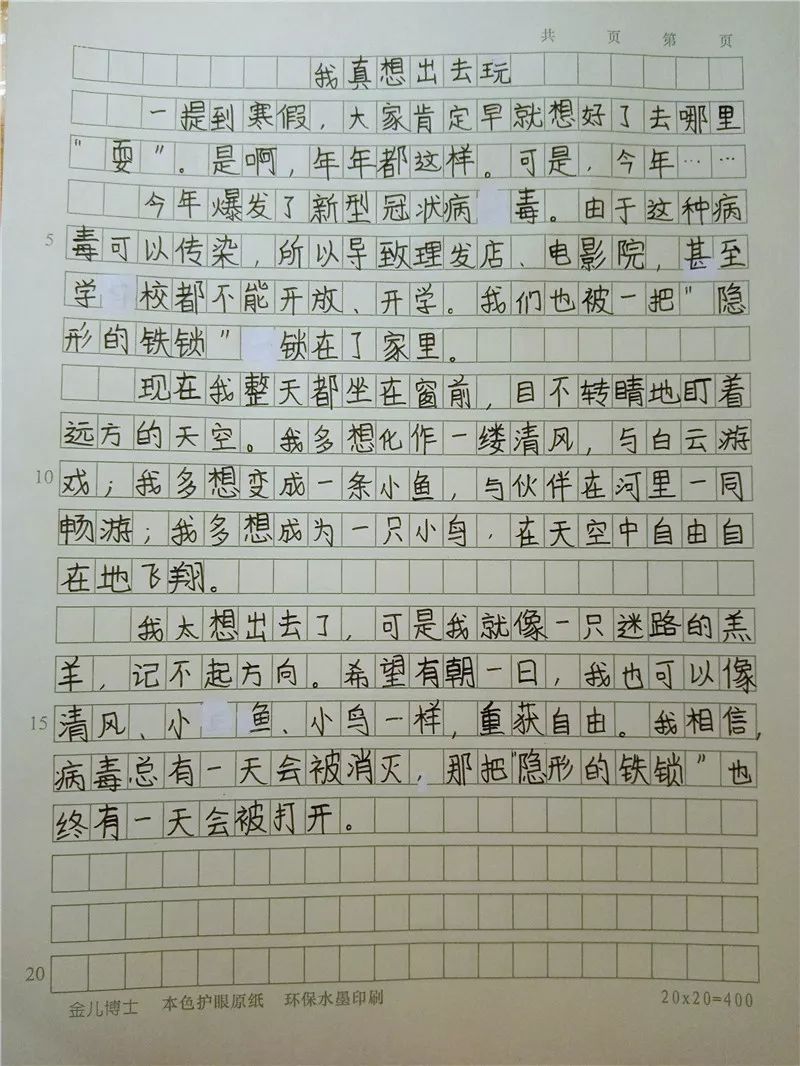 共 页 第 页
我真想出去玩
一提到寒假，大家肯定早就想好了去哪里
“耍”。是啊，年年都这样。可是，今年……
今年爆发了新型冠状病毒。由于这种病
5 毒可以传染，所以导致理发店、电影院，甚至
学校都不能开放、开学。我们也被一把“隐
形的铁锁”锁在了家里。
现在我整天都坐在窗前，目不转睛地盯着
远方的天空。我多想化作一缕清风，与白云游
10 戏；我多想变成一条小鱼，与伙伴在河里一同
畅游；我多想成为一只小鸟，在天空中自由自
在地飞翔。
我太想出去了，可是我就像一只迷路的羔
羊，记不起方向。希望有朝一日，我也可以像
15 清风、小鱼、小鸟一样，重获自由。我相信，
病毒总有一天会被消灭，那把“隐形的铁锁”也
终有一天会被打开。
20
金儿博士 本色护眼原纸 环保水墨印刷 20x20=400